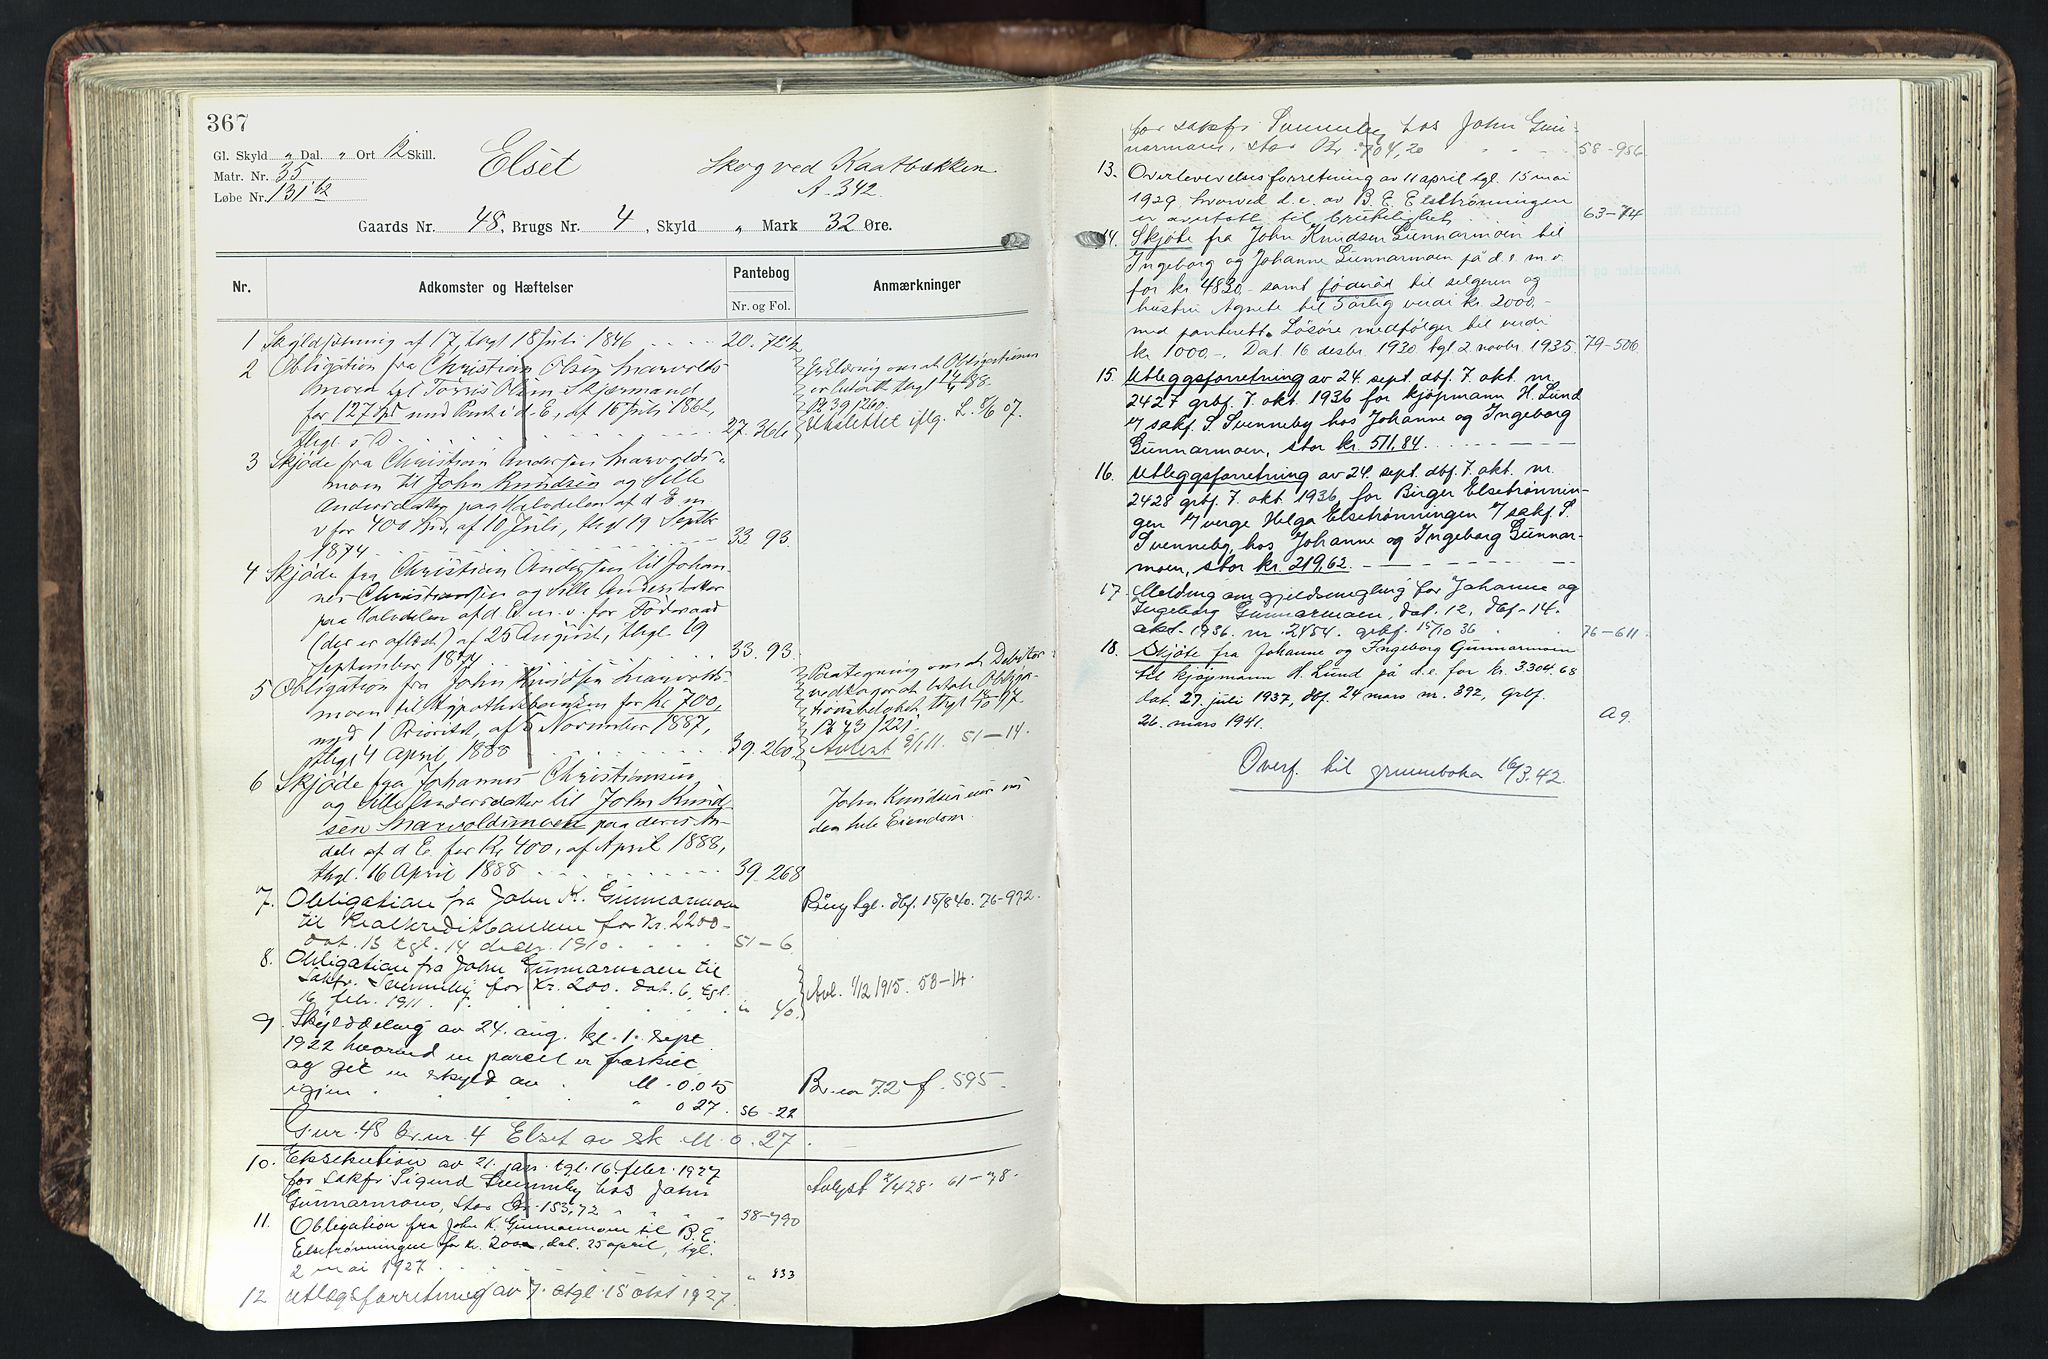 367
Gl. Skyld „ Dal. „ Ort 12 Skill.
Matr. Nr. 35
Løbe Nr. 131 b2
Elset
Skog ved Kaatbækken
A. 342.
Gaards Nr. 48, Brugs Nr. 4, Skyld „ Mark 32 Øre.
Nr.
Adkomster og Hæftelser
Pantebog
Nr. og Fol.
Anmærkninger
1 Skyldsætning af 17, thgl 18 Juli 1846 20. 72
2 Obligation fra Christian Olsen
moen til Tarris Olsen
for 127 Spd med Pant i d. E, af 16 Juli 1862,
thgl. s. D. 27. 366
Erklæring om at Obligationen
er betalt thgl 14/4 88.
Pb 39/260
Udslettet iflg. L. 8/6 07.
3 Skjøde fra Christian Andersen
moen til John Knudsen og Sille
Andersdatter paa Halvdelen af d E m.
v for 400 Spd, af 10 Juli, thgl 19 Septbr
1874 33. 93.
4 Skjøde fra Christian Andersen til Johan-
nes Christiansen og Sille Andersdatter
paa Halvdelen af d. E. m. v. for Føderaad
(der er aflæst) af 25 August, thgl. 19
September 1874 33. 93.
5 Obligation fra John Knudsen
moen til Hypothekbanken for Kr 700,
med 1 Prioritet, af 5 November 1887,
thgl 4 April 1888 39. 260
Paategning om at Debitor
vedtager at betale Obliga-
tionsbeløbet thgl
Pb 43/221
Avlest 9/1 11. 51-14.
6 Skjøde fra Johannes Christiansen
og Sille Andersdatter til John Knud-
sen paa deres An-
dele af d E. for Kr 400, af April 1888,
thgl. 16 April 1888 39. 268
John Knudsen eier nu
den hele Eiendom.
7. Obligation fra John K. Gunnarmoen
til Realkreditbanken for Kr. 2200-
dat. 13 tgl. 14 decbr. 1910. 51-6
tgl. dbf. 15/8 40. 76-972.
8. Obligation fra John Gunnarmoen til
Sakfr. Svenneby for Kr. 200. dat. 6, tgl.
16 febr. 1911. „ 40.
Avl. 1/12 1915. 53-14.
9. Skylddeling av 24. aug. tgl. 1. sept
1922 hvorved en parcel er fraskilt
og git en skyld av M. 0.05
igjen „ 0 27. 56-22
Br. nr 72 f. 595.
G. nr. 48 br. nr. 4 Elset av sk M. 0. 27.
10. Eksekution av 21. jan. tgl. 16. febr. 1927
for sakfr Sigurd Svenneby hos John
Gunnarmoen, stor Kr. 153,72 58-790
Avlyst 2/4 28. 61-38.
11. Obligation fra John K. Gunnarmoen til B. E.
Elsetrønningen for kr. 2000, dat. 25 april, tgl.
2 mai 1927. „ 833
12 Utlægsforretning av 7. tgl. 15 okt 1927.
for sakfr Svenneby hos John Gun-
narmoen, stor Kr. 704,20 58-986
13. Overlevelsesforretning av 11 april tgl. 15 mai
1929 hvorved d. e. av B. E. Elsetrønningen
er avstaatt til brukelighet. 63-74
14. Skjøte fra John Knudsen Gunnarmoen til
Ingeborg og Johanne Gunnarmoen på d. e. m. v.
for kr 4830,- samt føderåd til selgeren og
hustru Agnete til 5 årlig verdi kr. 2000,-
med panterett. Løsøre medfølger til verdi
kr 1000-. Dat. 16 desbr. 1930 tgl. 2. novbr. 1935. 79-506
15. Utleggsforretning av 24. sept. dbf. 7. okt. nr.
2427 grbf. 7. okt. 1936 for kjøpmann H. Lund
v/ sakf. S. Svenneby hos Johanne og Ingeborg
Gunnarmoen, stor kr. 511,84.
16. Utleggsforretning av 24. sept. dbf. 7. okt. nr.
2428 grbf. 7. okt. 1936 for Birger Elsetrønnin-
gen v/ verge Helga Elsetrønningen v/ sakf. S.
Svenneby, hos Johanne og Ingeborg Gunnar-
moen, stor kr. 219,62.
17. Melding om gjeldsmegling for Johanne og
Ingeborg Gunnarmoen, dat. 12, dbf. 14.
okt. 1936. nr. 2454. grbf. 15/10 36 76-611
18. Skjøte fra Johanne og Ingeborg Gunnarmoen
til kjøpmann H. Lund på d. e. for kr. 3304.68
dat. 27. juli 1937, dbf. 24 mars nr. 392, grbf.
26. mars 1941. A9.
Overf. til grunnboka 16/3. 42.